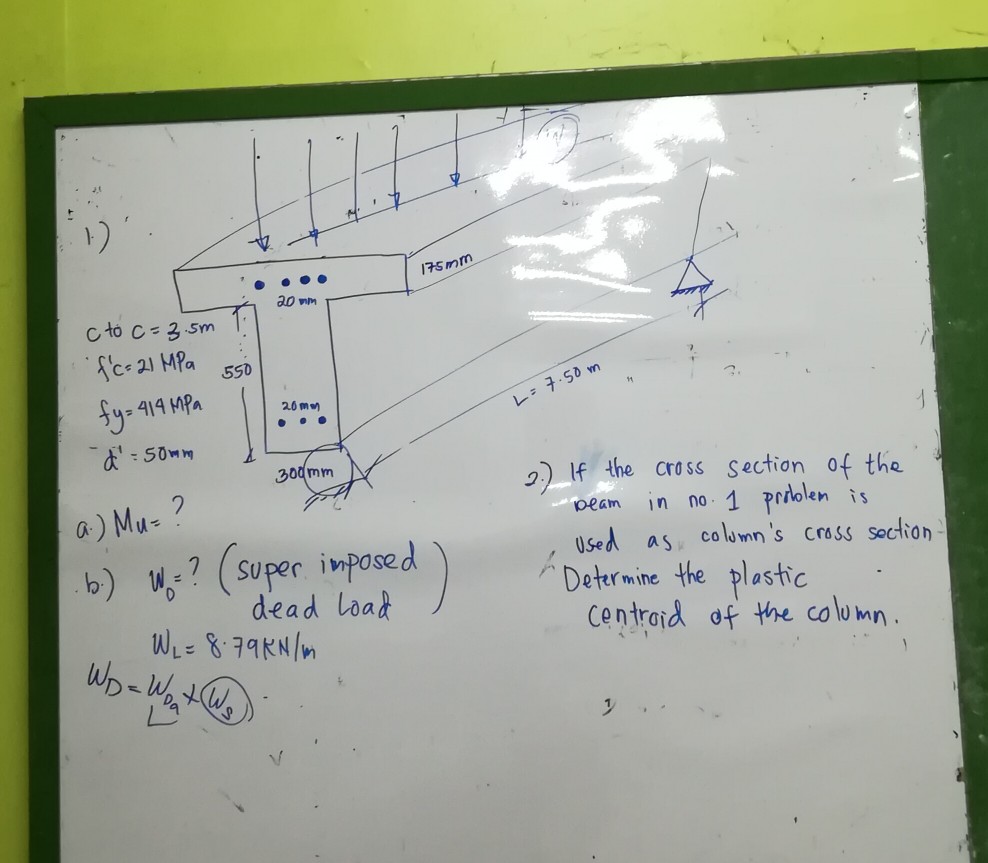 W
1.)
175mm
20 mm
c to c = 3.5m
f'c = 21 MPa
550
L = 7.50 m
fy = 414 MPa
20mm
d' = 50mm
300mm
2.) If the cross section of the
beam in no. 1 problem is
used as column's cross section
Determine the plastic
centroid of the column.
a.) Mu = ?
b.) W_D = ? (super imposed
dead load)
W_L = 8.79KN/m
W_D =